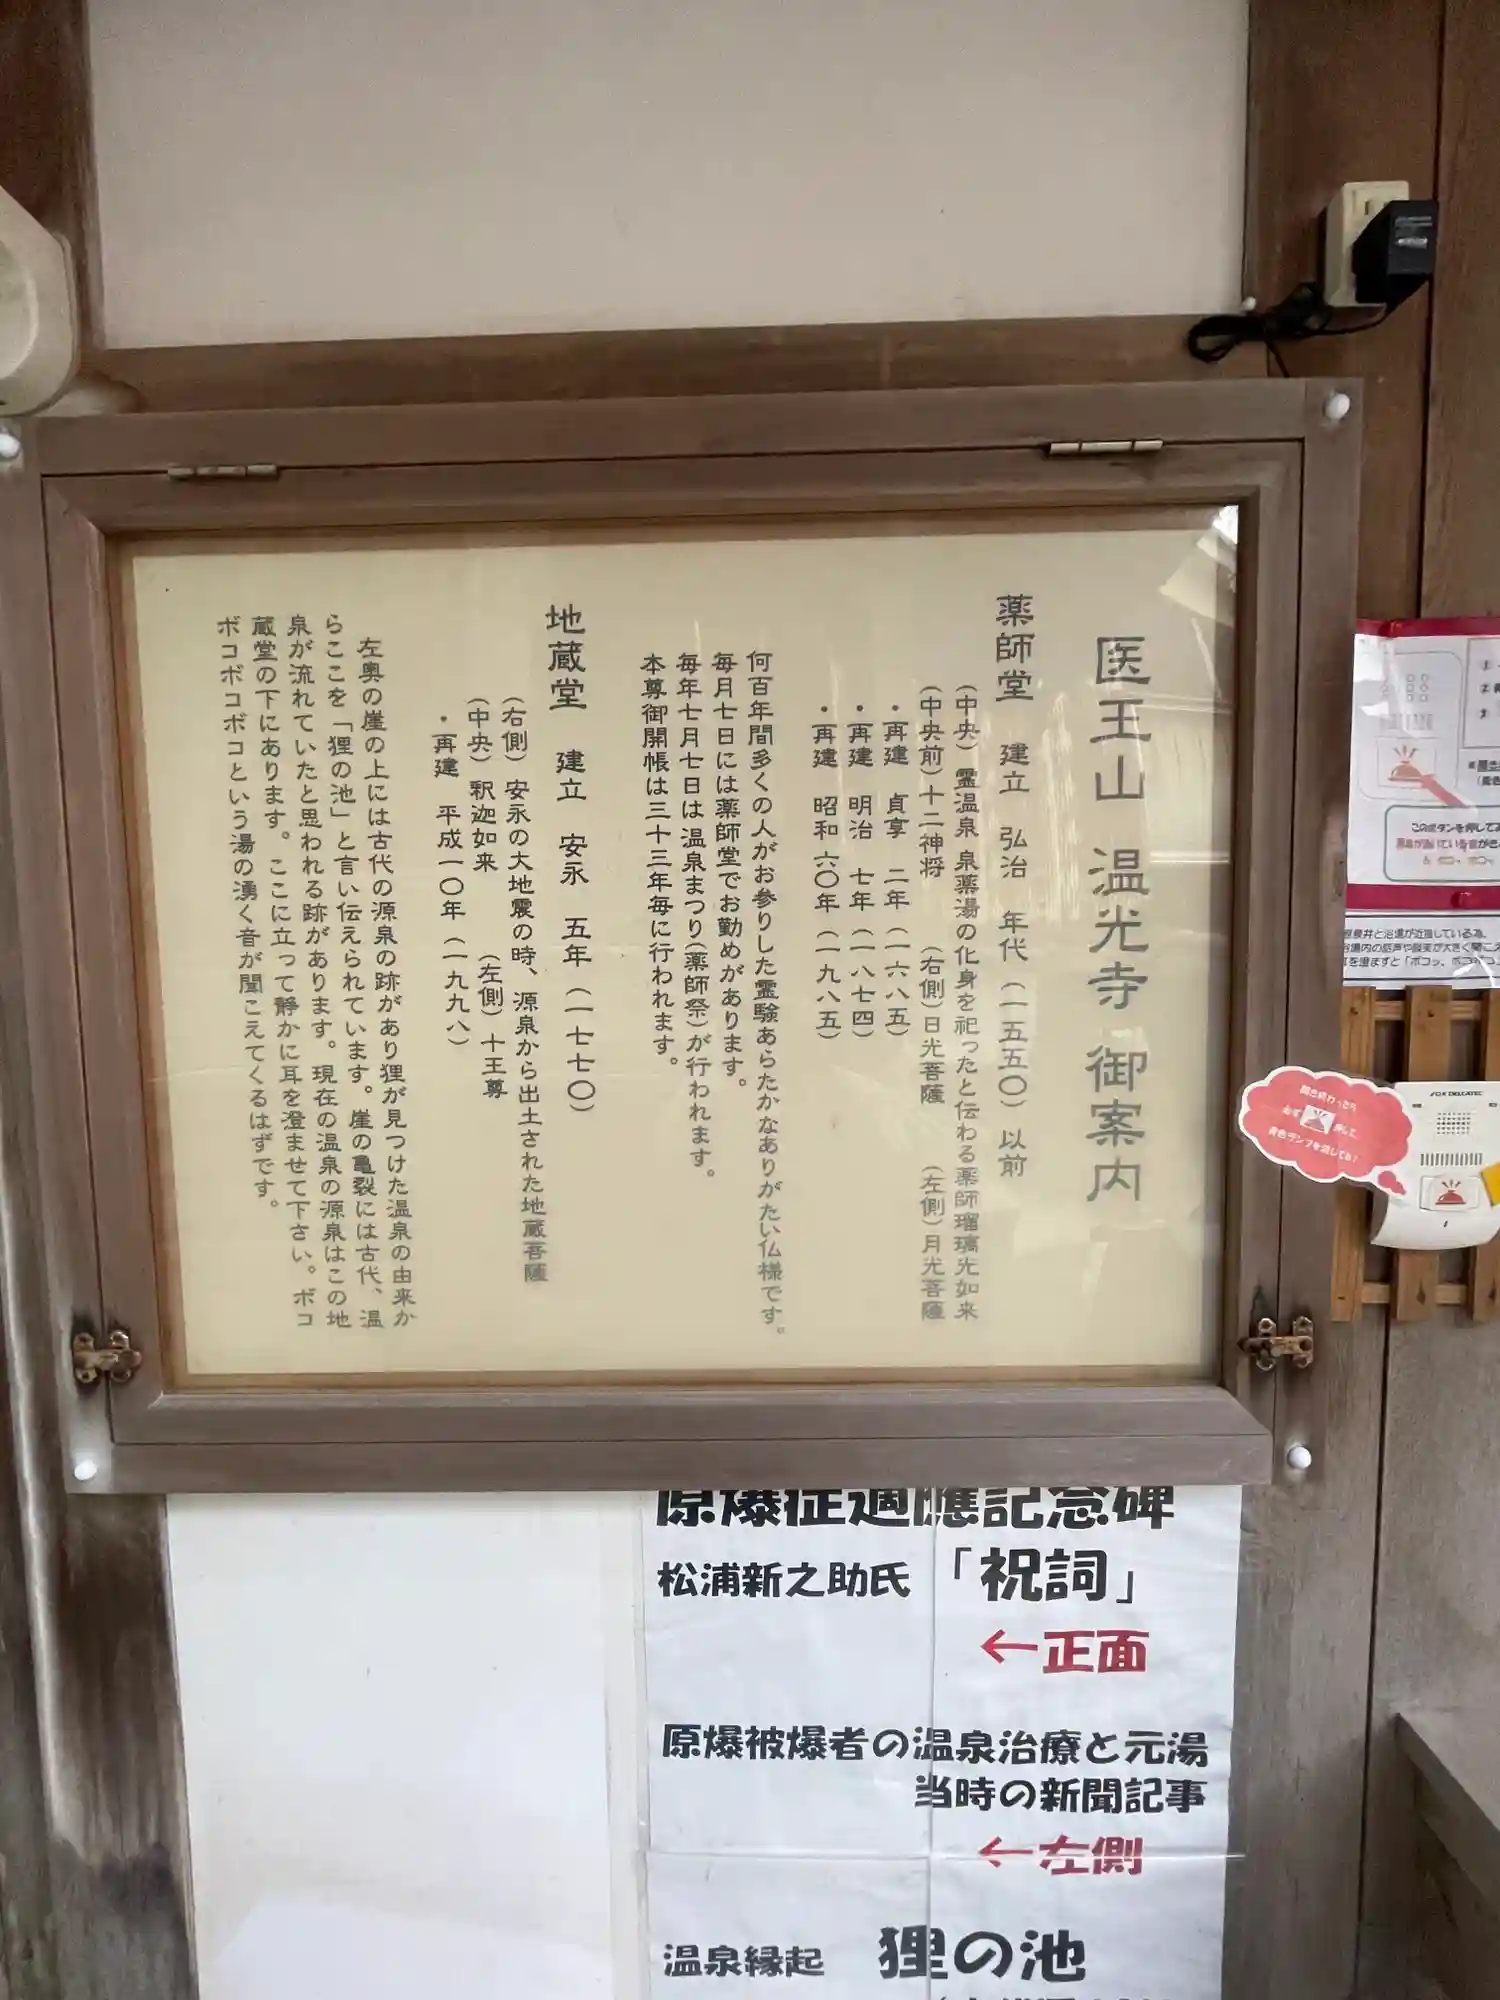 医王山 温光寺 御案内
薬師堂 建立 弘治 年代（一五五〇）以前
（中央）霊温泉 泉薬湯の化身を祀ったと伝わる薬師瑠璃光如来
（中央前）十二神将 （右側）日光菩薩 （左側）月光菩薩
・再建 貞享 二年（一六八五）
・再建 明治 七年（一八七四）
・再建 昭和 六〇年（一九八五）
何百年間多くの人がお参りした霊験あらたかなありがたい仏様です。
毎月七日には薬師堂でお勤めがあります。
毎年七月七日は温泉まつり（薬師祭）が行われます。
本尊御開帳は三十三年毎に行われます。
地蔵堂 建立 安永 五年（一七七〇）
（右側）安永の大地震の時、源泉から出土された地蔵菩薩
（中央）釈迦如来 （左側）十王尊
・再建 平成一〇年（一九九八）
左奥の崖の上には古代の源泉の跡があり狸が見つけた温泉の由来か
らここを「狸の池」と言い伝えられています。崖の亀裂には古代、温
泉が流れていたと思われる跡があります。現在の温泉の源泉はこの地
蔵堂の下にあります。ここに立って静かに耳を澄ませて下さい。ボコ
ボコボコボコという湯の湧く音が聞こえてくるはずです。
このボタンを押して
聞き終わったら
必ず 押して、
黄色ランプを消してね！
原爆症適應記念碑
松浦新之助氏 「祝詞」
←正面
原爆被爆者の温泉治療と元湯
当時の新聞記事
←左側
温泉縁起 狸の池